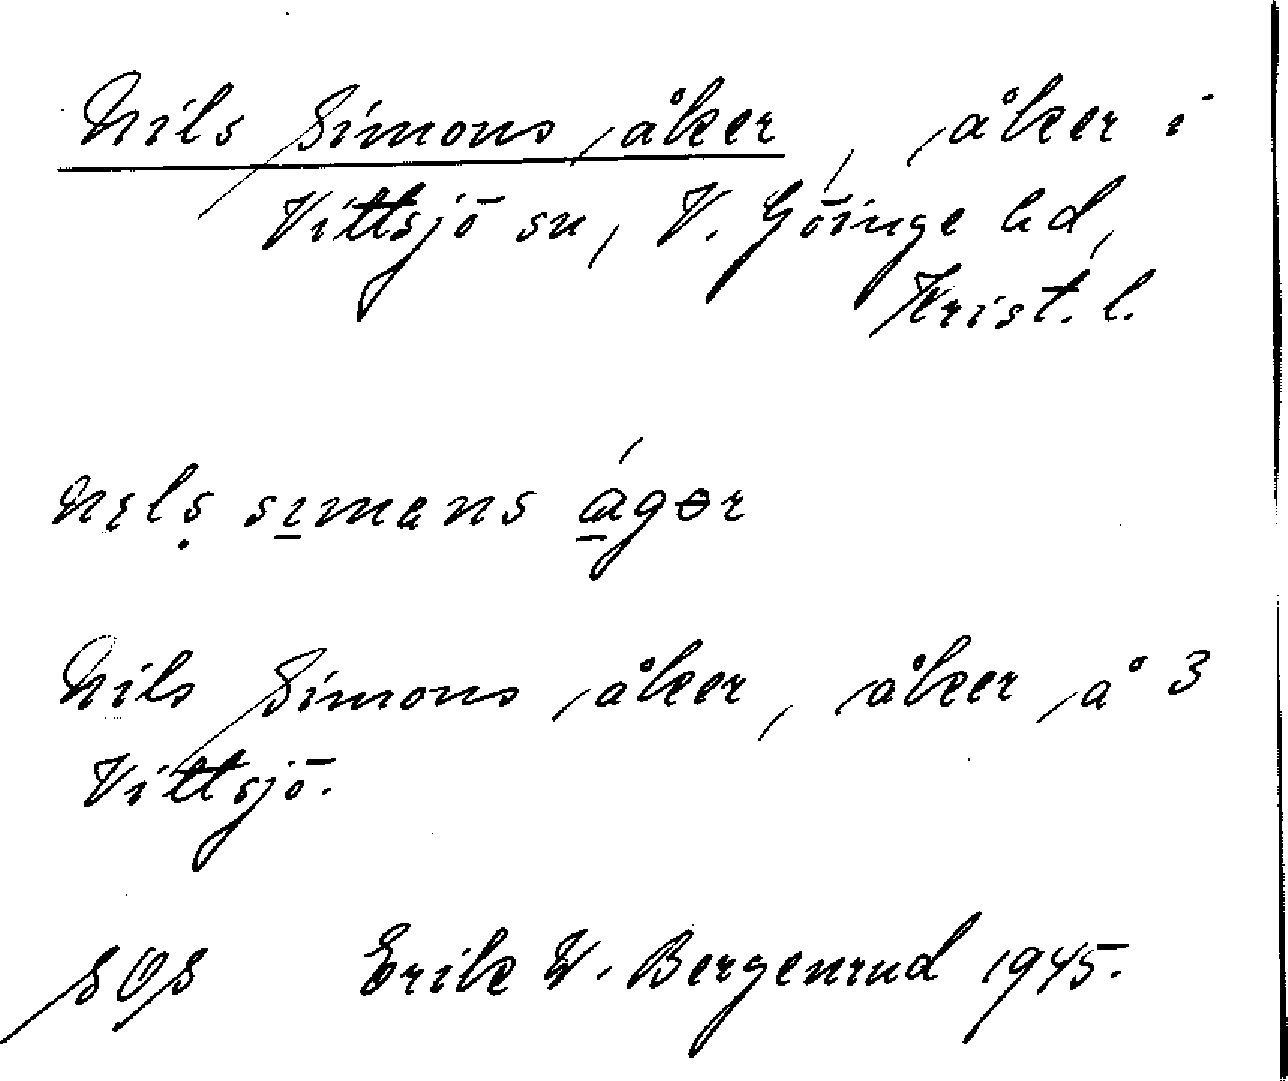 Nils Simons åker, åker i
Vittsjö sn, V. Göinge hd,
Krist. l.
nįls sı̲mans á̲gər
Nils Simons åker, åker å 3
Vittsjö.
SOS Erik W. Bergenrud 1945.